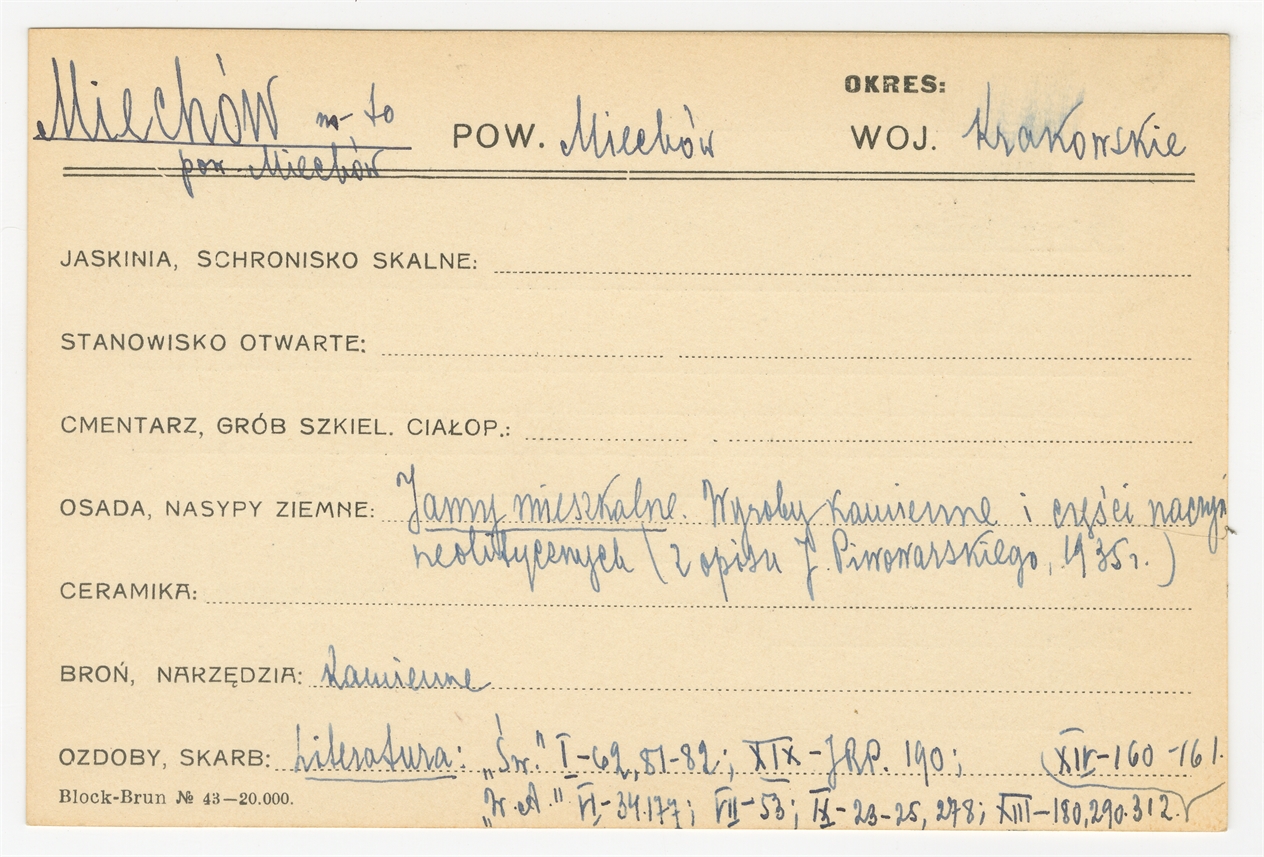 OKRES:
Miechów m-to POW. Miechów WOJ. Krakowskie
pow. Miechów
JASKINIA, SCHRONISKO SKALNE:
STANOWISKO OTWARTE:
CMENTARZ, GRÓB SZKIEL. CIAŁOP.:
OSADA, NASYPY ZIEMNE: Jamy mieszkalne. Wyroby kamienne i części naczyń
neolitycznych (z opisu J. Piwowarskiego, 1935r.)
CERAMIKA:
BROŃ, NARZĘDZIA: kamienne
OZDOBY, SKARB: Literatura: „Św." I-62,81-82; XIX-JRP. 190; XIV-160-161.
Block-Brun № 43—20.000.
„W.A." VI-34.177; VII-53; IX-23-25, 278; XIII-180,290.312.